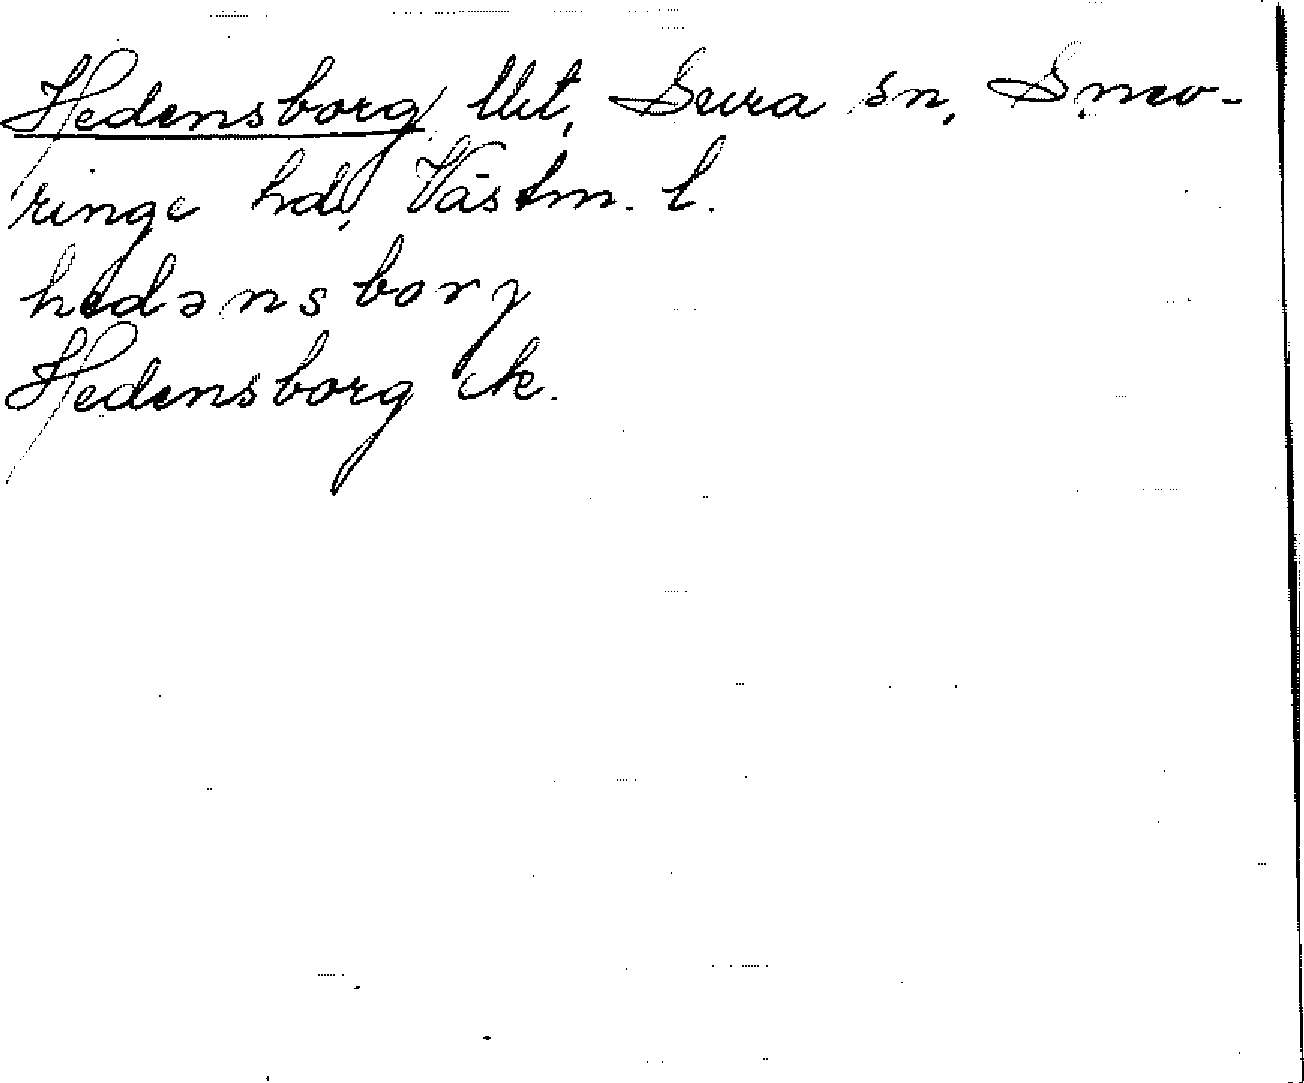 Hedensborg lht, Sura sn, Snev-
ringe hd, Västm. l.
hedənsborj
Hedensborg ek.